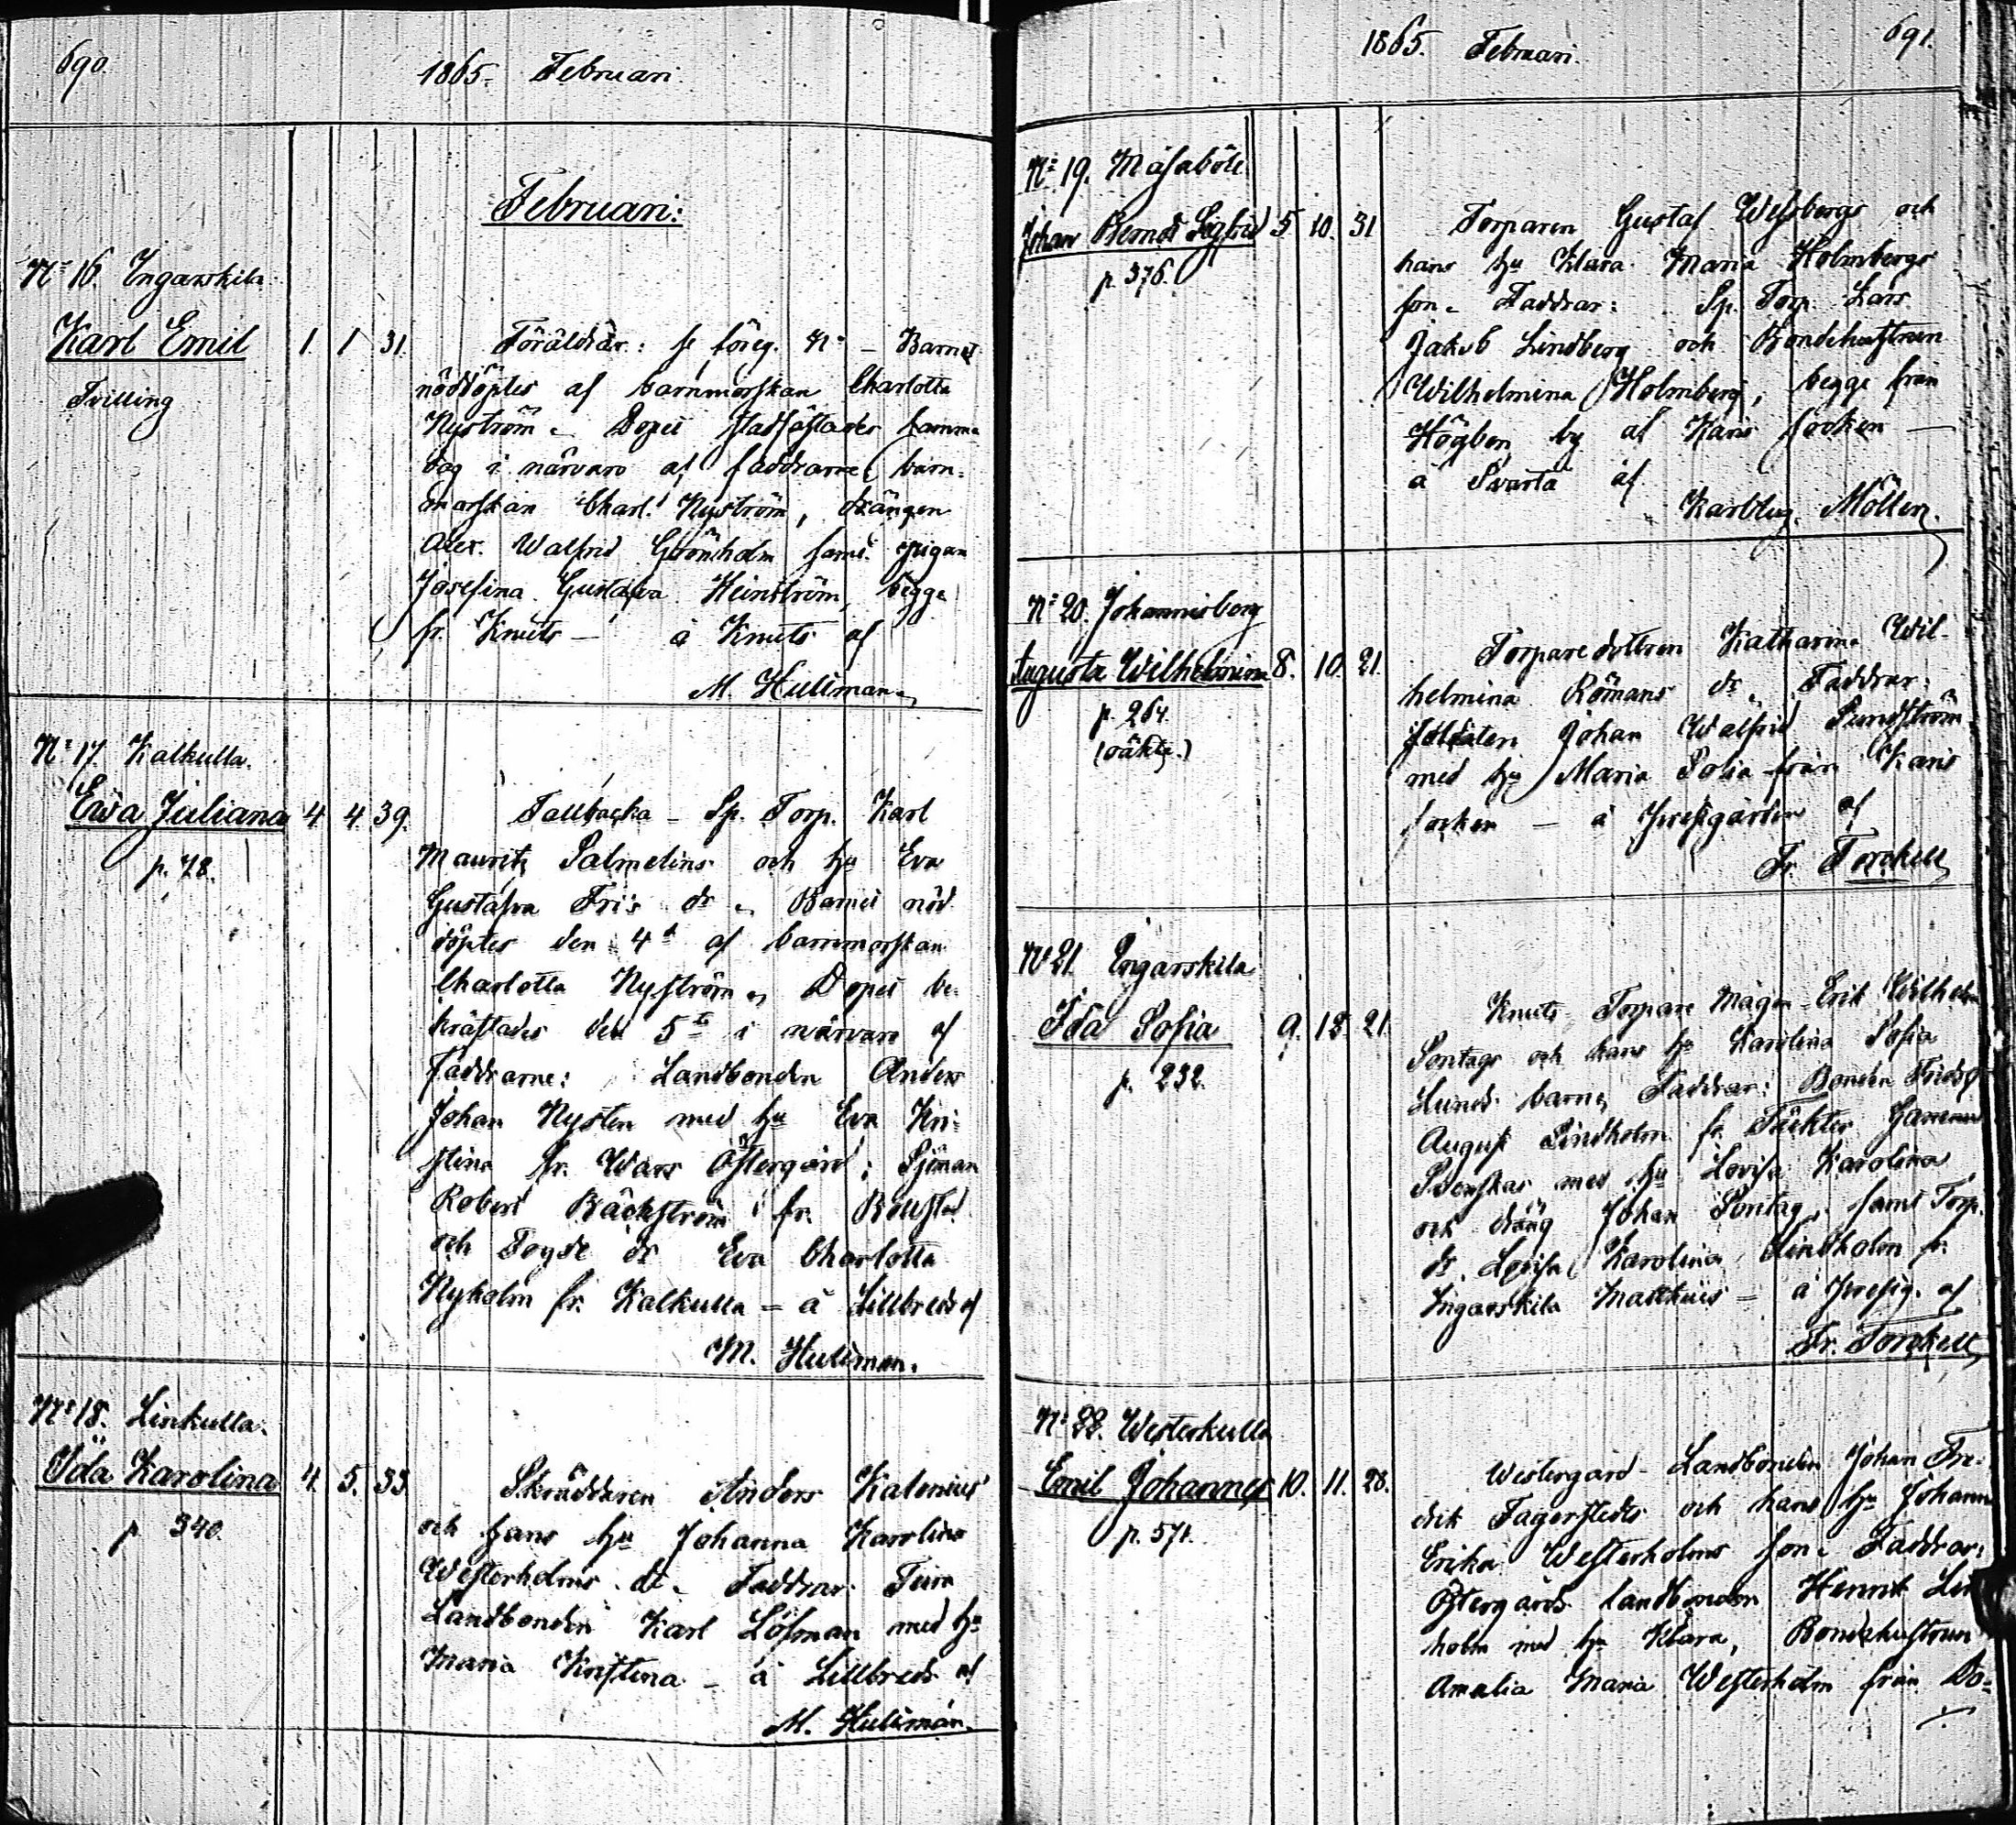 690.
1865. Februari.
Februari:
No 16. Ingarskila
Karl Emil 1. 1 31.
Tvilling
Föräldrar: se föreg. No – Barnet
nöddöptes af barnmorskan Charlotta
Nyström. Dopet stadfästades samma
dag i närvaro af faddrarne barn-
morskan Charl. Nyström, drängen
Alex. Walfrid Grönholm samt pigan
Josefina Gustafva Heinström, begge
fr. Knuts – å Knuts af
M. Hultman.
No 17. Kalkulla.
Ewa Juliana 4. 4. 39.
p. 78.
Tallbacka – Sp. Torp. Karl
Mauritz Palmelins och hu Eva
Gustafva Fri's dr. Barnet nöd
döptes den 4d af barnmorskan
Charlotta Nyström. Dopet be-
kräftades den 5te i närvaro af
Faddrarne: Landbonden Anders
Johan Nysten med hu Eva Kri-
stina fr. Wars Östergård; Sjöman
Robert Bäckström fr. Bollstad
och Torp dr Eva Charlotta
Nyholm fr. Kalkulla – å Lillbreds af
M. Hultman.
No 18. Linkulla.
Ida Karolina 4. 5. 33.
p. 340.
Skräddaren Anders Kalenius
och hans hu Johanna Karolina
Westerholms dr. Faddrar:
Landbonden Karl Löfman med hu
Maria Kristina – å Lillbreds af
M. Hultman.
1865. Februari.
691.
No 19. Måsaböle
Johan Bernd Sigfrid 5 10. 31
p. 376.
Torparen Gustaf Wessbergs och
hans hu Klara Maria Holmbergs
son. Faddrar: Sp. Torp. Lars
Jakob Lindberg och Bondehustrun
Wilhelmina Holmberg, begge från
Högben by af Karis socken –
å Svartå af
Möller.
No 20. Johannisberg
Augusta Wilhelmina 8. 10. 21.
p. 264.
(oäkta.)
Torparedottren Katharina Wil-
helmina Römans dr. Faddrar:
Soldaten Johan Walfrid Sundström
med hu Maria Sofia från Karis
socken – å Prestgården af
Fr. Torckell
No 21. Ingarskila
Ida Sofia 9. 12. 21.
p. 232.
Knuts Torpare Mågen Erik Wilhelm
Sontags och hans hu Karolina Sofia
Lunds barn. Faddrar: Bonden
August Lindholm fr. Täkter
Svenskas med hu Lovisa Karolina
och dräng Johan Sontag, samt Torp.
dr. Lovisa Karolina Lindholm fr.
Ingarskila Matthies – å Prestg. af
Fr. Torckell
No 22. Westerkulla
Emil Johannes 10. 11. 28.
p. 571.
Westergård – Landbonden Johan Fre-
drik Fagerstedts och hans hu Johanna
Erika Westerholms son. Faddrar:
Östergårds landbonden Henrik
holm med hu Klara, Bondehustrun
Amalia Maria Westerholm från Bo-